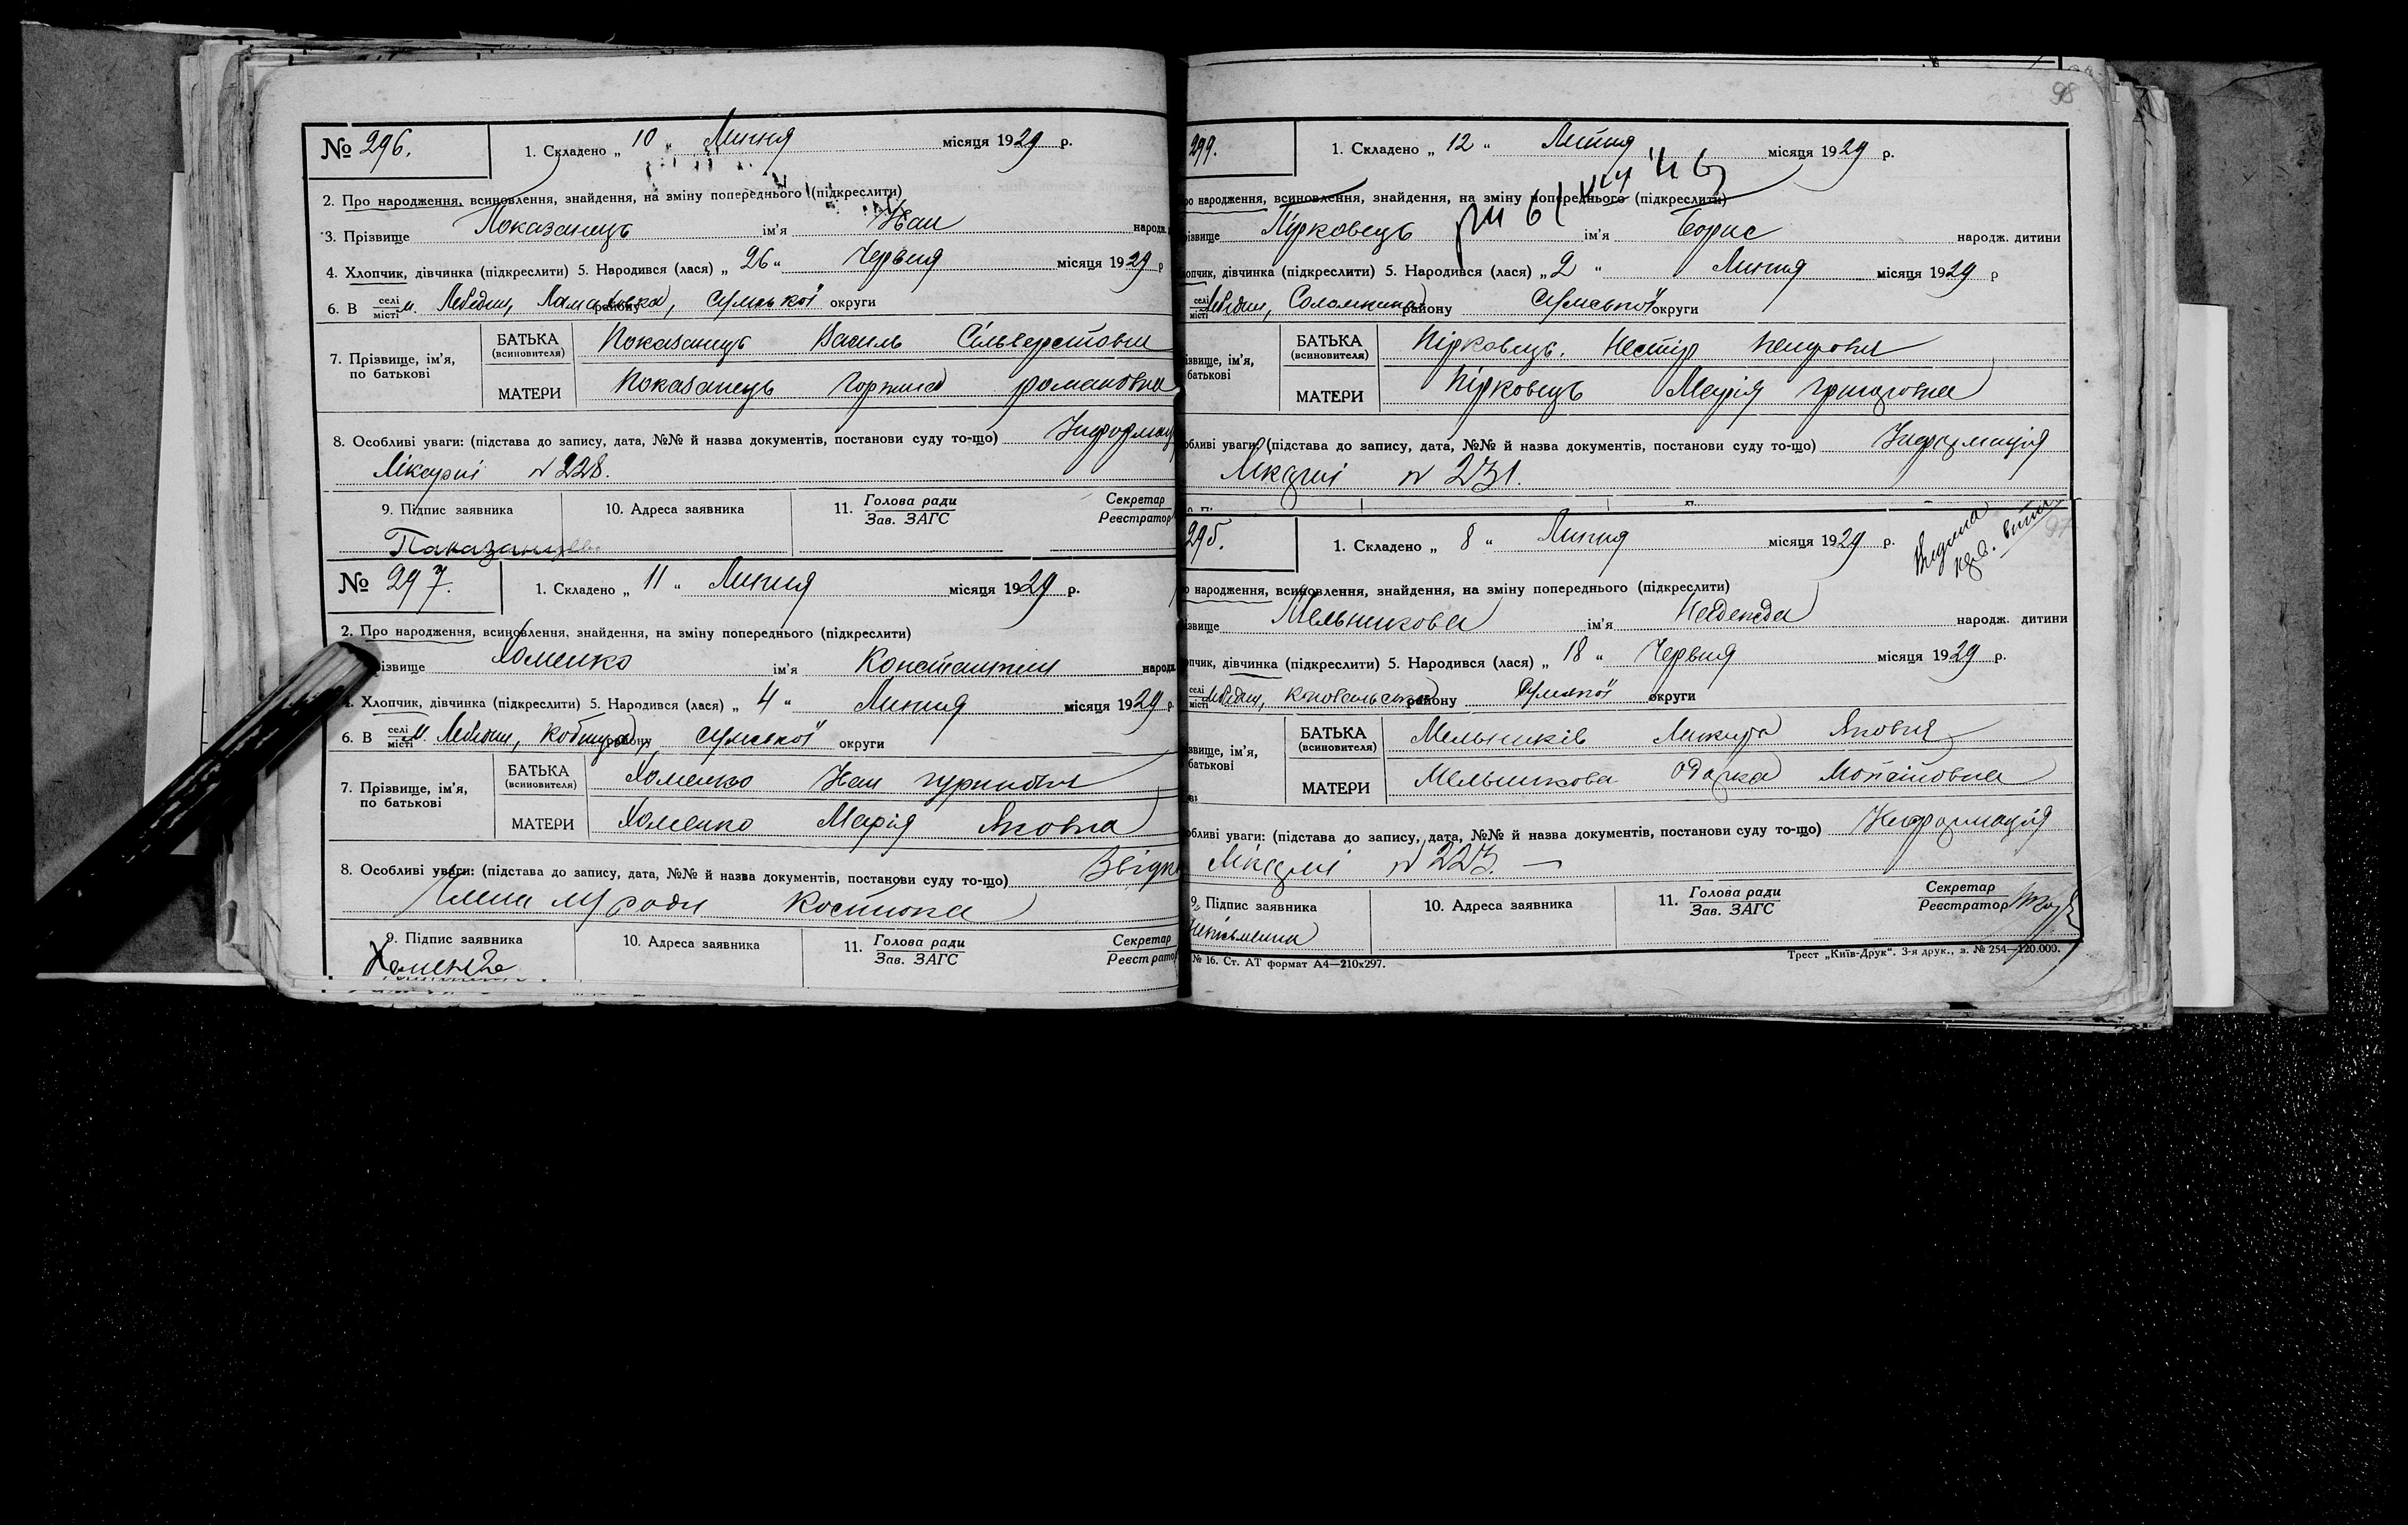 № 296.
1. Складено „ 10 " Липня місяця 1929 р.
2. Про народження, всиновлення, знайдення, на зміну попереднього (підкреслити)
3. Прізвище Показанець ім'я Иван народж.
4. Хлопчик, дівчинка (підкреслити) 5. Народився (лася) „ 26 " Червня місяця 1929 р
6. В селі місті м. Лебедин, району, Сумської округи
7. Прізвище, ім'я, по батькові
БАТЬКА (всиновителя) Показанець Василь Сільверстович
МАТЕРИ Показанець Горпина романовна
8. Особливі уваги: (підстава до запису, дата, №№ й назва документів, постанови суду то-що) Інформац
Лікарні № 228.
9. Підпис заявника
10. Адреса заявника
11. Голова ради Зав. ЗАГС
Секретар Реєстратор
№ 297.
1. Складено „ 11 " Липня місяця 1929 р.
2. Про народження, всиновлення, знайдення, на зміну попереднього (підкреслити)
різвище Хоменко ім'я Константин народж
4. Хлопчик, дівчинка (підкреслити) 5. Народився (лася) „ 4 " Липня місяця 1929 р.
6. В селі місті м. Лебедин, району, Сумської округи
7. Прізвище, ім'я, по батькові
БАТЬКА (всиновителя) Хоменко Иван гуринович
МАТЕРИ Хоменко Марія Яковна
8. Особливі уваги: (підстава до запису, дата, №№ й назва документів, постанови суду то-що)
Члена м/ ради Костюка
9. Підпис заявника
10. Адреса заявника
11. Голова ради Зав. ЗАГС
Секретар Реєстратор
Хоменко
98
299.
1. Складено „ 12 " Липня місяця 1929 р.
ро народження, всиновлення, знайдення, на зміну попереднього (підкреслити)
різвище Пірковець ім'я Борис народж. дитини
лопчик, дівчинка (підкреслити) 5. Народився (лася) „ 2 " Липня місяця 1929 р
селі місті Лебедин, району Сумської округи
ізвище, ім'я, батькові
БАТЬКА (всиновителя) Пірковець. Нестір Петрович
МАТЕРИ Пірковець Марія григоровна
обливі уваги: (підстава до запису, дата, №№ й назва документів, постанови суду то-що) Інформація
Лікарні № 231.
295.
1. Складено „ 8 " Липня місяця 1929 р.
97
о народження, всиновлення, знайдення, на зміну попереднього (підкреслити)
ізвище Мельникова ім'я Надежда народж. дитини
опчик, дівчинка (підкреслити) 5. Народився (лася) „ 18 " Червня місяця 1929 р.
селі місті Лебедин, району Сумської округи
звище, ім'я, батькові
БАТЬКА (всиновителя) Мельників Микита Якович
МАТЕРИ Мельникова Одарка
обливі уваги: (підстава до запису, дата, №№ й назва документів, постанови суду то-що) Інформація
Лікарні № 223. —
9. Підпис заявника
10. Адреса заявника
11. Голова ради Зав. ЗАГС
Секретар Реєстратор
Неписьменна
№ 16. Ст. АТ формат А4—210х297.
Трест „Київ-Друк". 3-я друк., з. № 254—120.000.